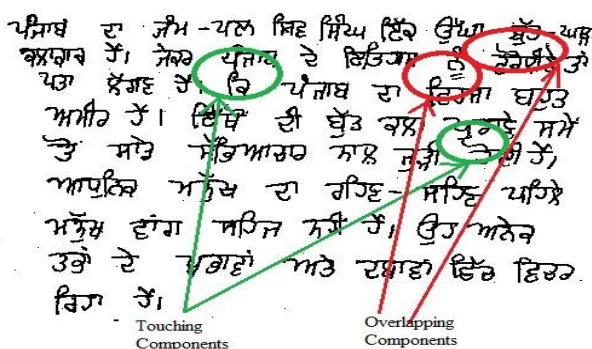 ਪੰਜਾਬ ਦਾ ਜੰਮ-ਪਲ ਸ਼ਿਵ ਸਿੰਘ ਇੱਕ ਉੱਘਾ ਬੁੱਤ-ਘਾੜਾ
ਕਲਾਕਾਰ ਹੈ। ਜੇਕਰ ਪੰਜਾਬ ਦੇ ਇਤਿਹਾਸ ਨੂੰ ਤਾਂ
ਪਤਾ ਲੱਗਦਾ ਹੈ। ਕਿ ਪੰਜਾਬ ਦਾ ਵਿਰਸਾ ਬਹੁਤ
ਅਮੀਰ ਹੈ। ਇੱਥੋਂ ਦੀ ਬੁੱਤ ਕਲਾ ਪੁਰਾਣੇ ਸਮੇਂ
ਤੋਂ ਸਾਡੇ ਸੱਭਿਆਚਾਰ ਨਾਲ ਜੁੜੀ ਹੋਈ ਹੈ।
ਆਧੁਨਿਕ ਮਨੁੱਖ ਦਾ ਰਹਿਣ-ਸਹਿਣ ਪਹਿਲੇ
ਮਨੁੱਖ ਵਾਂਗ ਸਹਿਜ ਨਹੀਂ ਹੈ। ਉਹ ਅਨੇਕ
ਤਰਾਂ ਦੇ ਪ੍ਰਭਾਵਾਂ ਅਤੇ ਦਬਾਵਾਂ ਵਿੱਚ ਵਿਚਰ
ਰਿਹਾ ਹੈ।
Touching Components
Overlapping Components